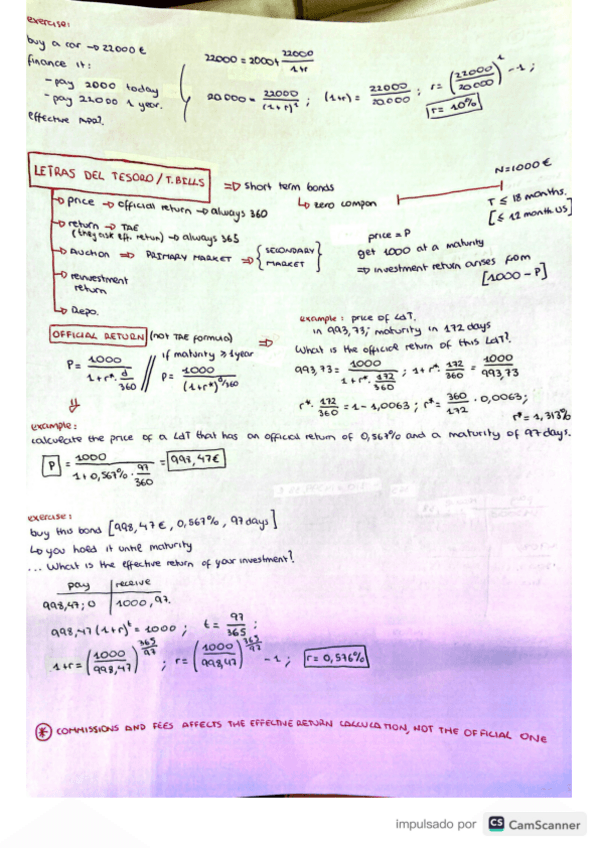 exercise:
buy a car → 22000 €
finance it:
- pay 2000 today
- pay 22000 1 year.
effective
22000 = 2000 + 22000 / 1+r
20000 = 22000 / (1+r)¹ ; (1+r) = 22000 / 20000 ; r = (22000 / 20000)¹ - 1 ;
r = 10%
LETRAS DEL TESORO / T. BILLS ⇒ short term bonds
↳ zero compon
N = 1000 €
T ≤ 18 months.
[≤ 12 month US]
→ price → official return → always 360
→ return → TAE
(they ask eff. return) → always 365
→ Auction ⇒ PRIMARY MARKET ⇒ {SECONDARY MARKET}
→ reinvestment
return
↳ Repo.
price = P
get 1000 at a maturity
⇒ investment return arises from
[1000 - P]
OFFICIAL RETURN (not TAE formula) ⇒
P = 1000 / 1+r*· d/360 // if maturity ≥ 1 year
P = 1000 / (1+r*)^d/360
example: price of LdT.
in 993,73; maturity in 172 days
What is the official return of this LdT?
993,73 = 1000 / 1+r*· 172/360 ; 1+r*· 172/360 = 1000 / 993,73
r*· 172/360 = 1 - 1,0063 ; r* = 360/172 · 0,0063;
r* = 1,313%
example:
calculate the price of a LdT that has an official return of 0,567% and a maturity of 97 days.
P = 1000 / 1+0,567% · 97/360 = 998,47€
exercise:
buy this bond [998,47€, 0,567%, 97 days]
↳ you hold it until maturity
... What is the effective return of your investment?
pay | receive
998,47; 0 | 1000, 97.
998,47 (1+r)^t = 1000 ; t = 97/365 ;
1+r = (1000 / 998,47)^365/97 ; r = (1000 / 998,47)^365/97 - 1 ; r = 0,576%
* COMMISSIONS AND FEES AFFECTS THE EFFECTIVE RETURN CALCULATION, NOT THE OFFICIAL ONE
impulsado por CS CamScanner